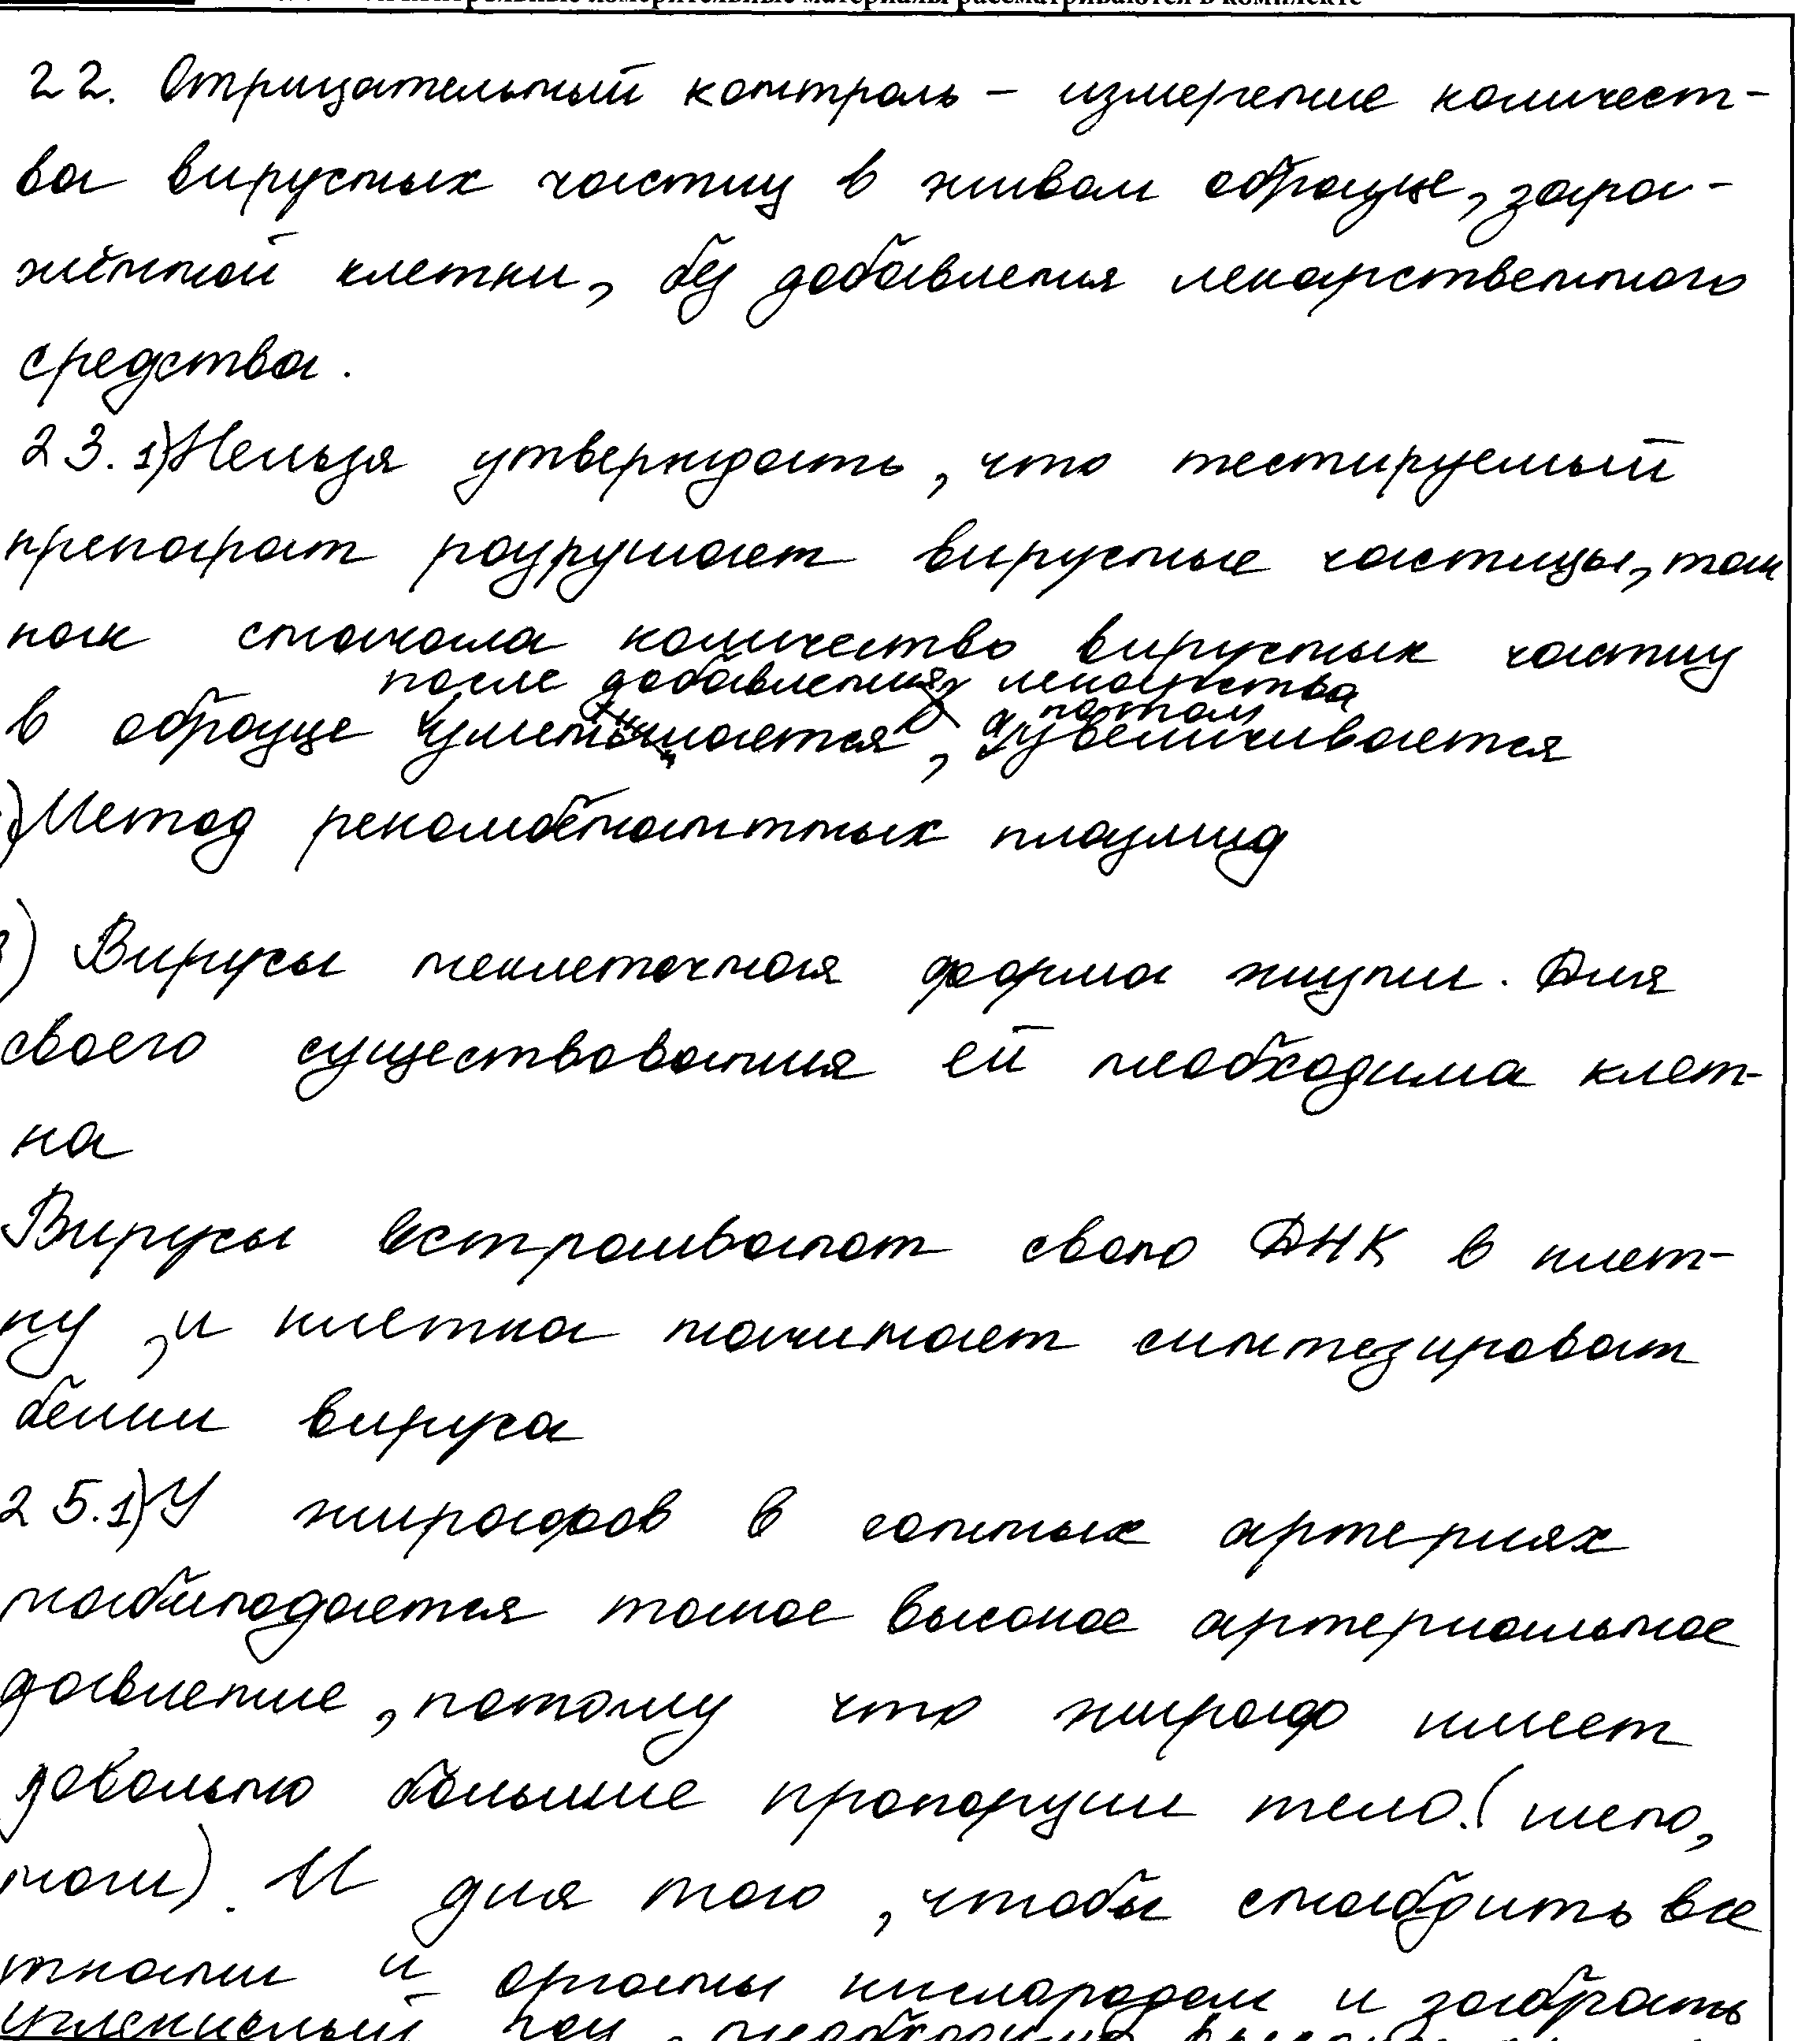 контрольные измерительные материалы рассматриваются в комплекте
22. Отрицательный контроль – измерение количест-
ва вирусных частиц в живом образце, зара-
жённой клетки, без добавления лекарственного
средства.
23. 1) Нельзя утверждать, что тестируемый
препарат разрушает вирусные частицы, так
как сначала количество вирусных частиц
после добавления лекарства
в образце уменьшается, а потом увеличивается
) Метод рекомбенантных плазмид
) Вирусы неклеточная форма жизни. Для
своего существования ей необходима клет-
ка
Вирусы встраивают свою ДНК в клет-
ку, и клетка начинает синтезироват
белки вируса
25. 1) У жирафов в сонных артериях
наблюдается такое высокое артериальное
давление, потому что жираф имеет
довольно большие пропорции тела. (шею,
ноги). И для того, чтобы снабдить все
ткани и органы кислородом и забрать
углекислый газ, необходимо